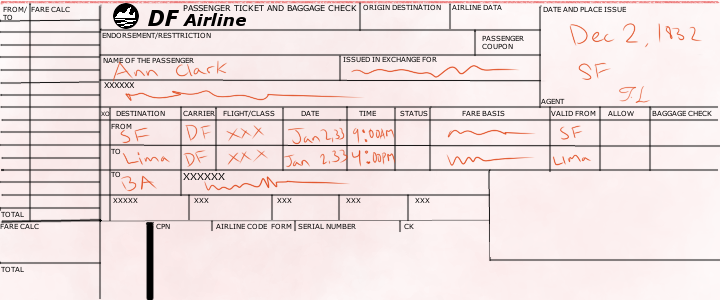 FROM/ TO FARE CALC
DF Airline
PASSENGER TICKET AND BAGGAGE CHECK
ORIGIN DESTINATION
AIRLINE DATA
DATE AND PLACE ISSUE
Dec 2, 1932
SF
AGENT JL
ENDORSEMENT/RESTTRICTION
PASSENGER
COUPON
NAME OF THE PASSENGER
Ann Clark
ISSUED IN EXCHANGE FOR
XXXXXX
XO DESTINATION CARRIER FLIGHT/CLASS DATE TIME STATUS FARE BASIS VALID FROM ALLOW BAGGAGE CHECK
FROM
SF DF XXX Jan 2,33 9:00AM SF
TO
Lima DF XXX Jan 2,33 4:00PM Lima
TO
BA
XXXXXX
XXXXX XXX XXX XXX XXX
TOTAL
FARE CALC
CPN AIRLINE CODE FORM SERIAL NUMBER CK
TOTAL